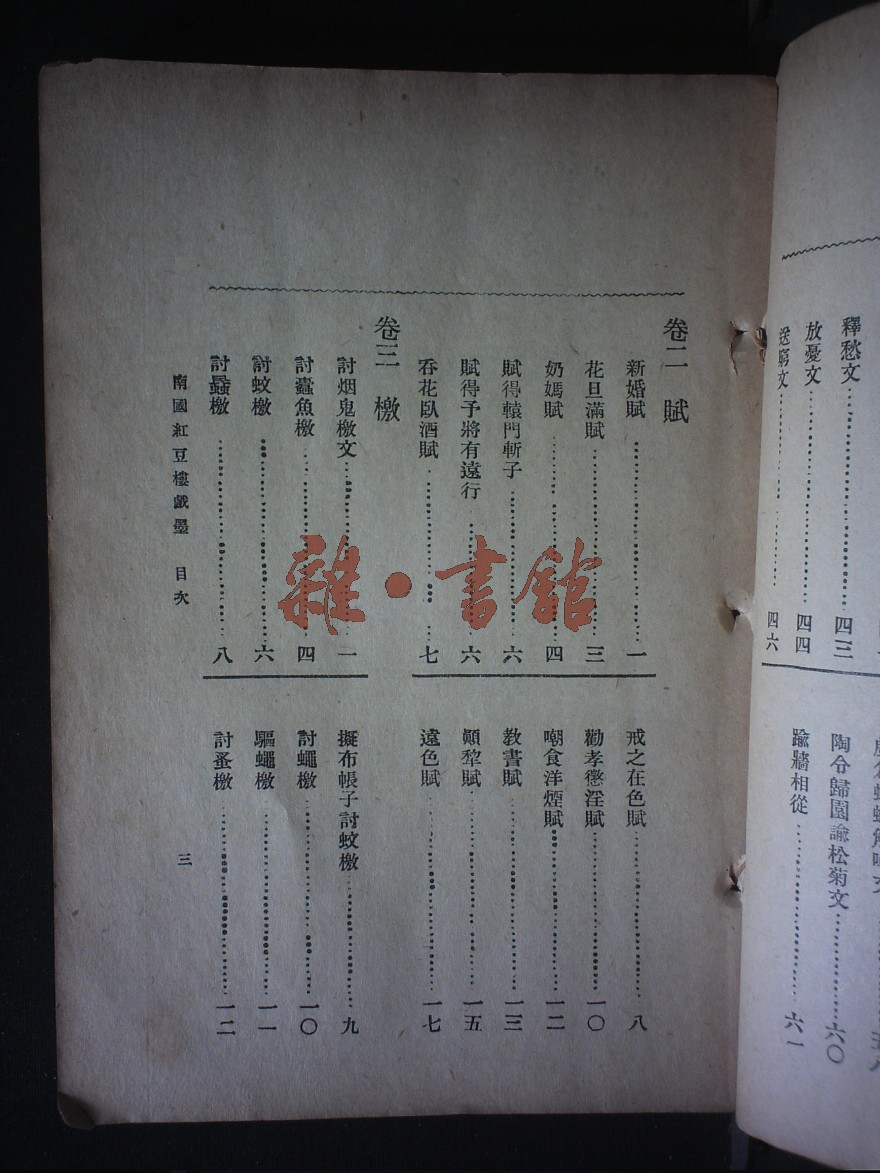 釋愁文 四三
放憂文 四四
送窮文 四六
陶令歸園諭松菊文 六〇
踰牆相從 六一
卷二 賦
新婚賦 一
花旦滿賦 三
奶媽賦 四
賦得轅門斬子 六
賦得予將有遠行 六
吞花臥酒賦 七
戒之在色賦 八
勸孝懲淫賦 一〇
嘲食洋煙賦 一二
教書賦 一三
顛犂賦 一五
遠色賦 一七
卷三 檄
討烟鬼檄文 一
討蠹魚檄 四
討蚊檄 六
討蝨檄 八
擬布帳子討蚊檄 九
討蠅檄 一〇
驅蠅檄 一一
討蚤檄 一二
南國紅豆樓戲墨 目次
三
雜·書館